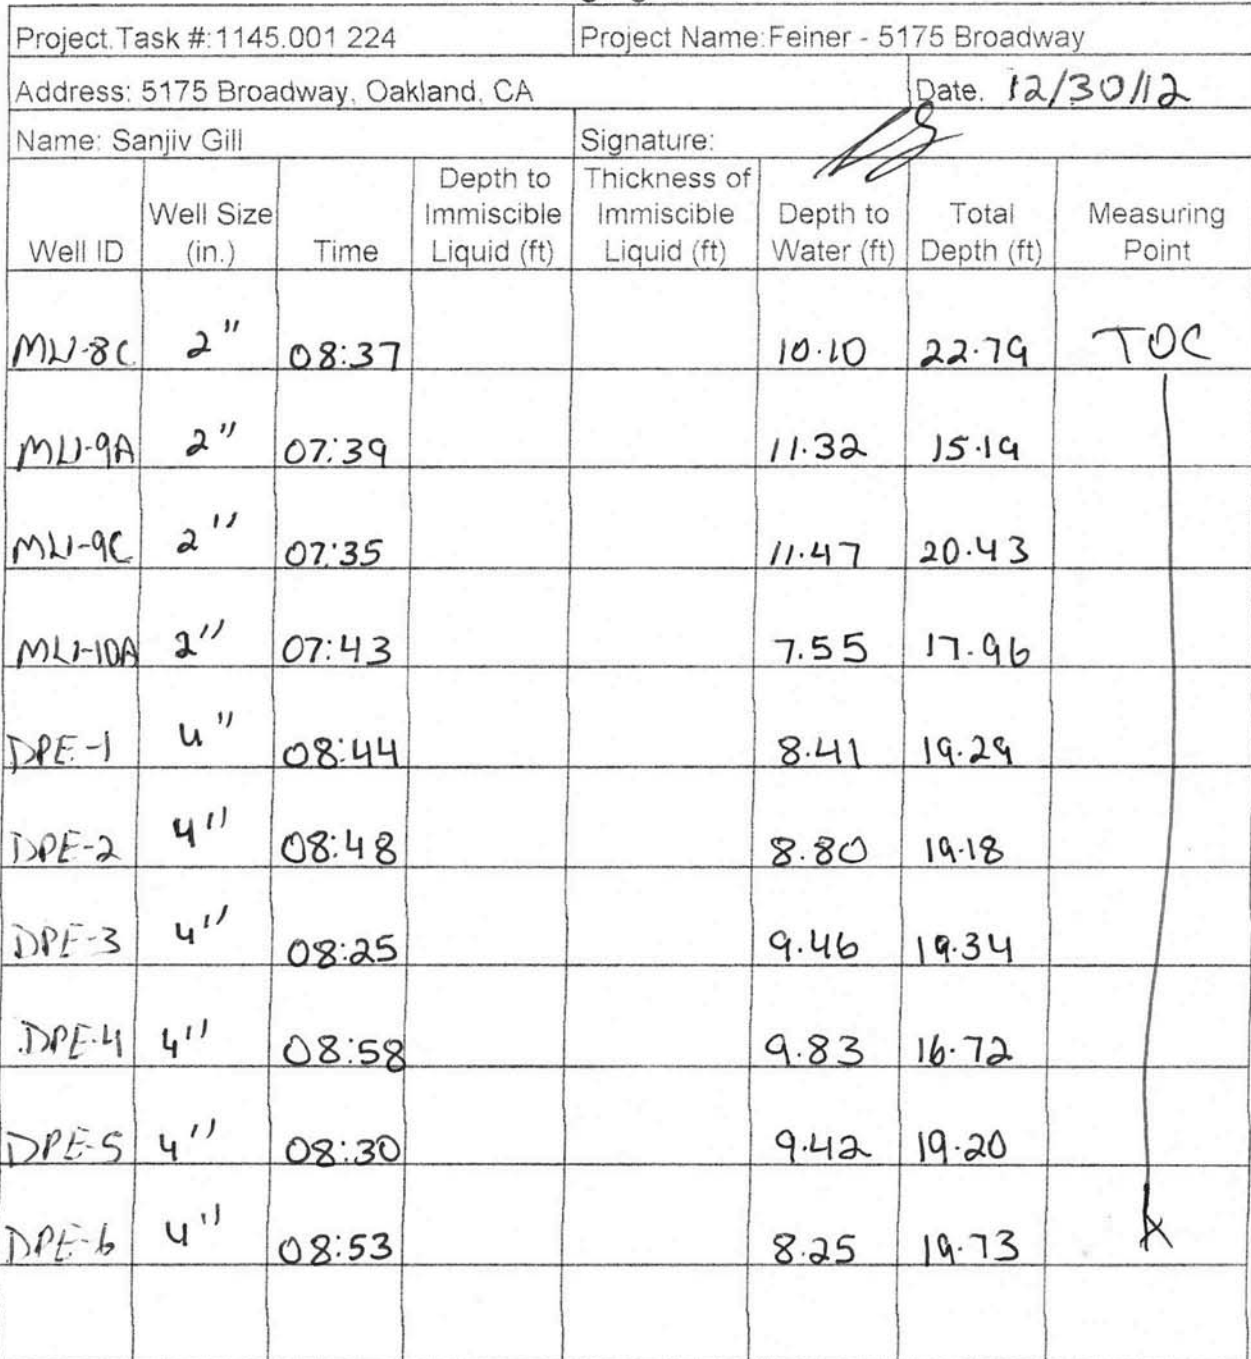 Project.Task #:1145.001 224 Project Name:Feiner - 5175 Broadway
Address: 5175 Broadway, Oakland, CA Date. 12/30/12
Name: Sanjiv Gill Signature:
Well ID Well Size (in.) Time Depth to Immiscible Liquid (ft) Thickness of Immiscible Liquid (ft) Depth to Water (ft) Total Depth (ft) Measuring Point
MW-8C 2" 08:37 10.10 22.79 TOC
MW-9A 2" 07:39 11.32 15.19
MW-9C 2" 07:35 11.47 20.43
MW-10A 2" 07:43 7.55 17.96
DPE-1 4" 08:44 8.41 19.29
DPE-2 4" 08:48 8.80 19.18
DPE-3 4" 08:25 9.46 19.34
DPE-4 4" 08:58 9.83 16.72
DPE-5 4" 08:30 9.42 19.20
DPE-6 4" 08:53 8.25 19.73